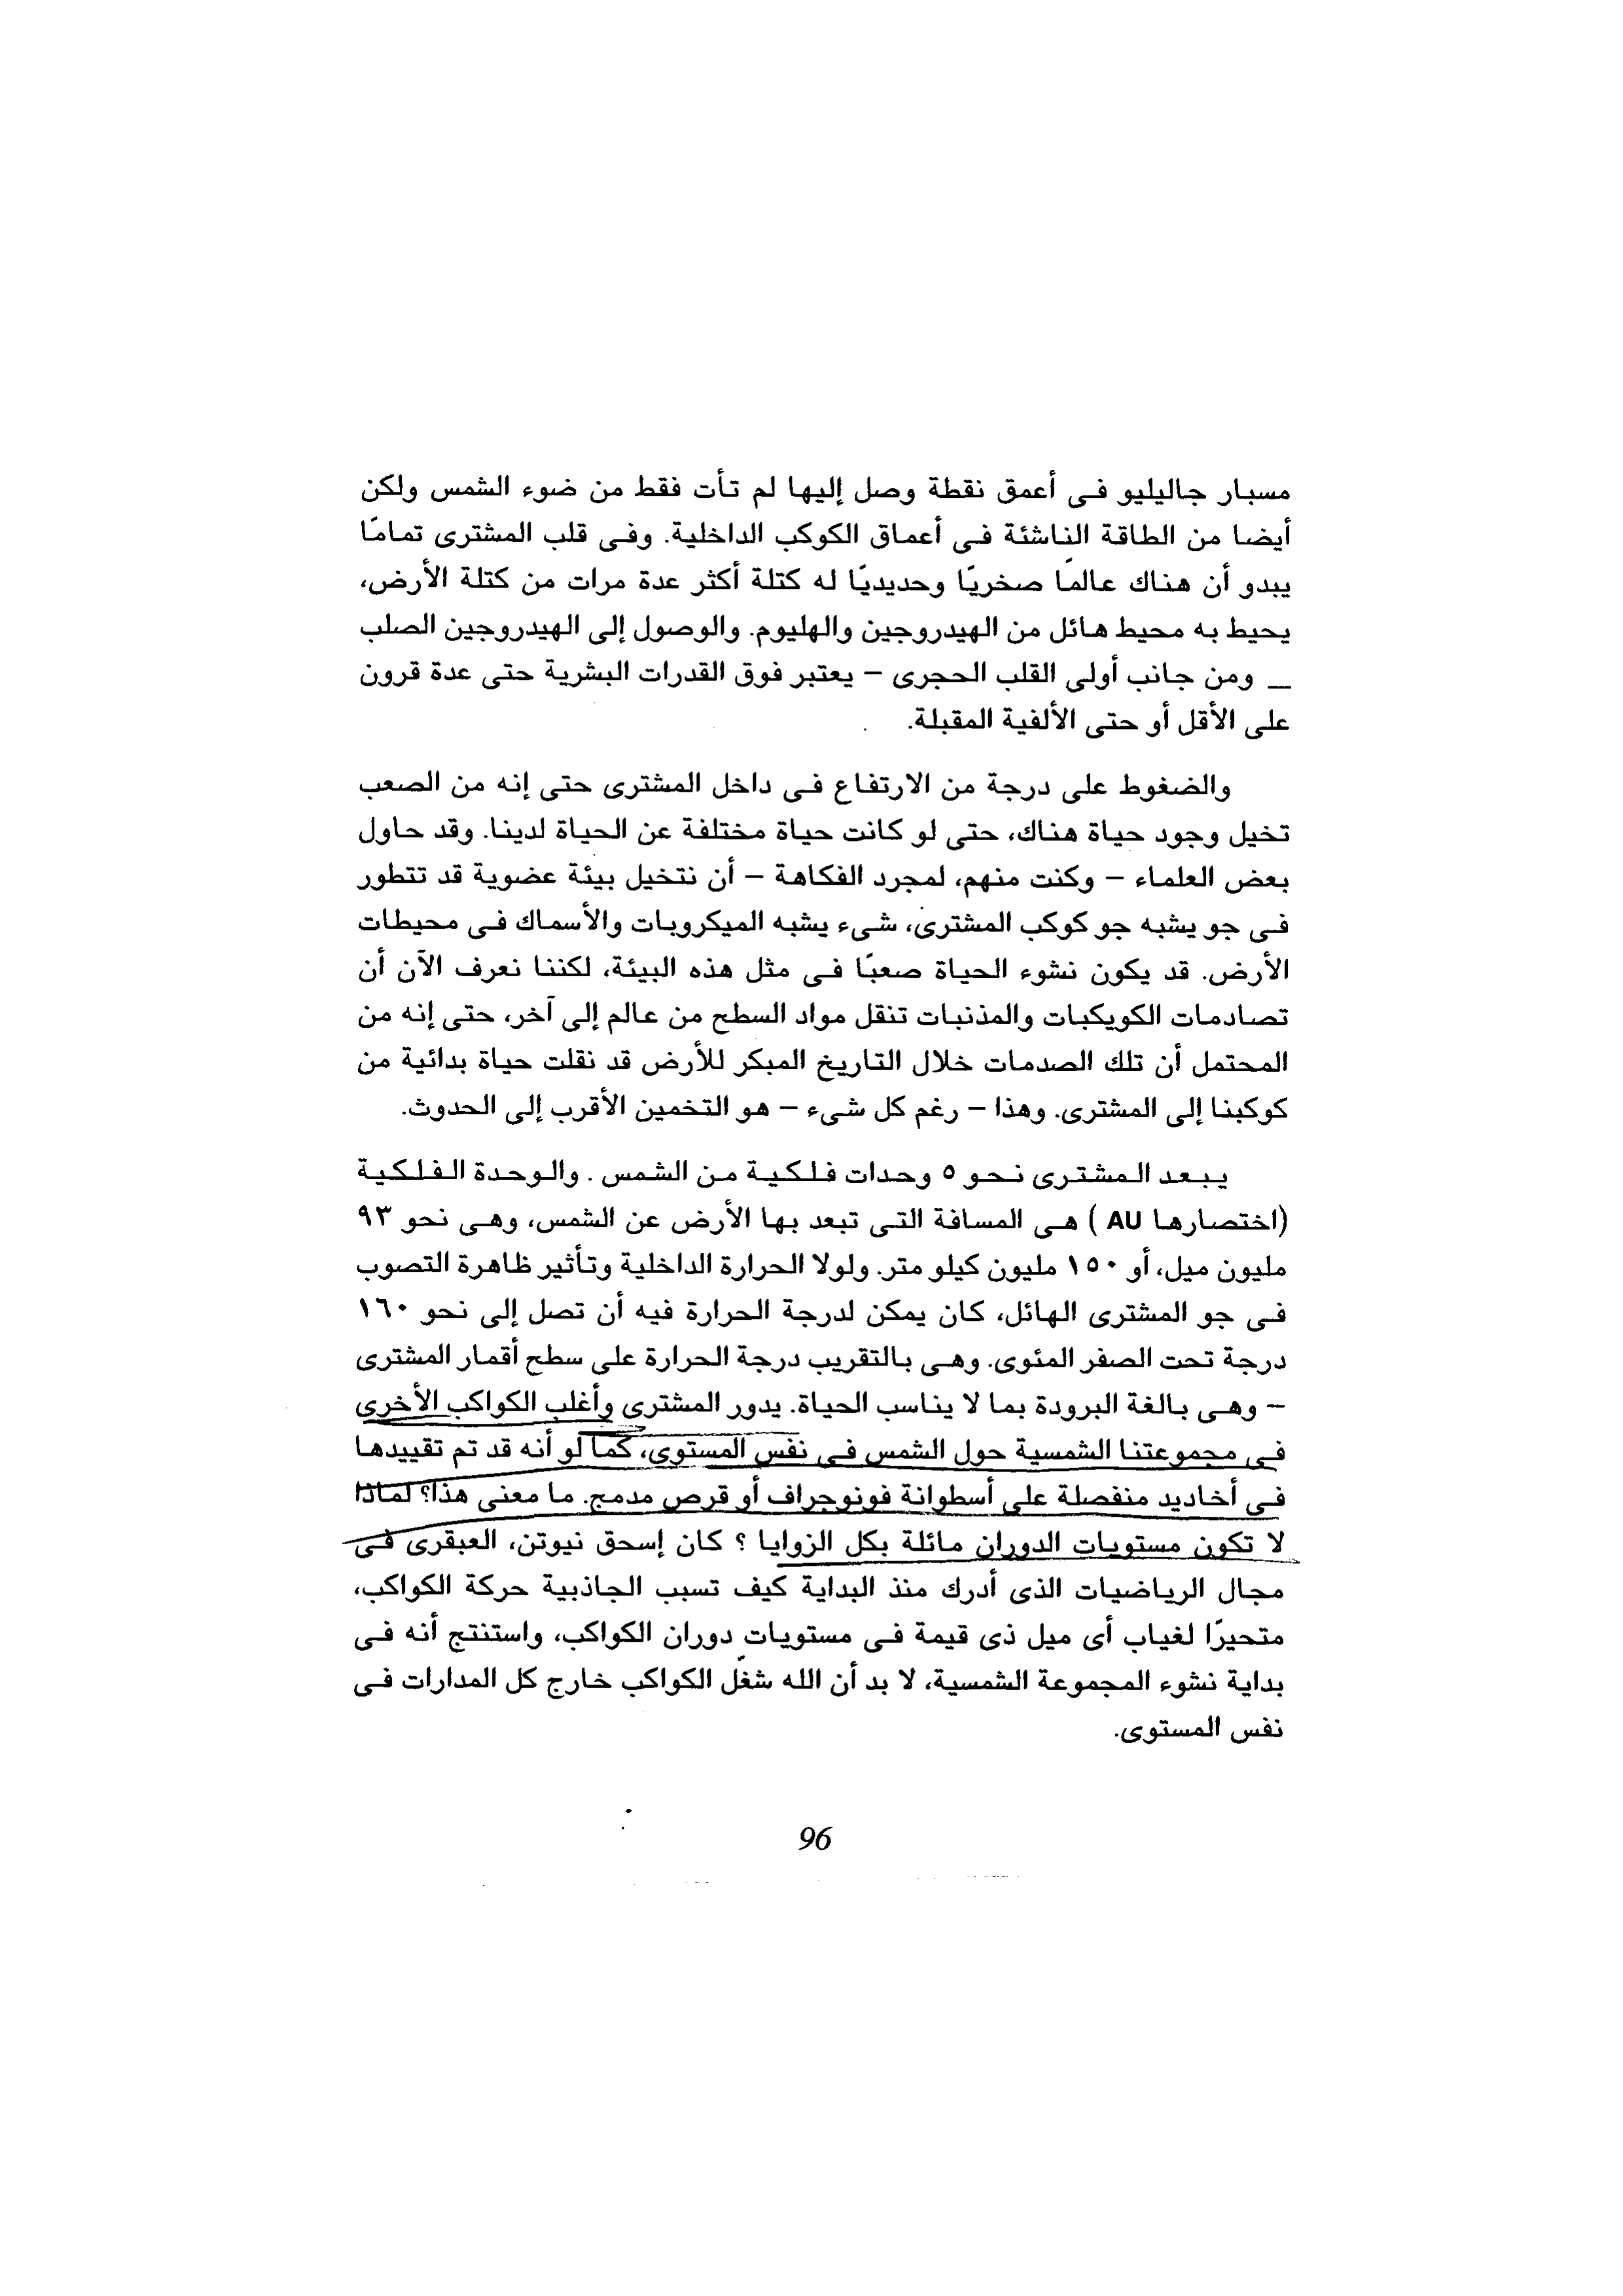 مسبار جاليليو فى أعمق نقطة وصل إليها لم تأت فقط من ضوء الشمس ولكن
أيضا من الطاقة الناشئة فى أعماق الكوكب الداخلية. وفى قلب المشترى تمامًا
يبدو أن هناك عالمًا صخريًا وحديديًا له كتلة أكثر عدة مرات من كتلة الأرض،
يحيط به محيط هائل من الهيدروجين والهليوم. والوصول إلى الهيدروجين الصلب
__ ومن جانب أولى القلب الحجرى – يعتبر فوق القدرات البشرية حتى عدة قرون
على الأقل أو حتى الألفية المقبلة.
والضغوط على درجة من الارتفاع فى داخل المشترى حتى إنه من الصعب
تخيل وجود حياة هناك، حتى لو كانت حياة مختلفة عن الحياة لدينا. وقد حاول
بعض العلماء – وكنت منهم، لمجرد الفكاهة – أن نتخيل بيئة عضوية قد تتطور
فى جو يشبه جو كوكب المشترى، شىء يشبه الميكروبات والأسماك فى محيطات
الأرض. قد يكون نشوء الحياة صعبًا فى مثل هذه البيئة، لكننا نعرف الآن أن
تصادمات الكويكبات والمذنبات تنقل مواد السطح من عالم إلى آخر، حتى إنه من
المحتمل أن تلك الصدمات خلال التاريخ المبكر للأرض قد نقلت حياة بدائية من
كوكبنا إلى المشترى. وهذا – رغم كل شىء – هو التخمين الأقرب إلى الحدوث.
يبعد المشترى نحو ٥ وحدات فلكية من الشمس . والوحدة الفلكية
(اختصارها AU ) هى المسافة التى تبعد بها الأرض عن الشمس، وهى نحو ٩٣
مليون ميل، أو ١٥٠ مليون كيلو متر. ولولا الحرارة الداخلية وتأثير ظاهرة التصوب
فى جو المشترى الهائل، كان يمكن لدرجة الحرارة فيه أن تصل إلى نحو ١٦٠
درجة تحت الصفر المئوى. وهى بالتقريب درجة الحرارة على سطح أقمار المشترى
– وهى بالغة البرودة بما لا يناسب الحياة. يدور المشترى وأغلب الكواكب الأخرى
فى مجموعتنا الشمسية حول الشمس فى نفس المستوى، كما لو أنه قد تم تقييدها
فى أخاديد منفصلة على أسطوانة فونوجراف أو قرص مدمج. ما معنى هذا؟ لماذا
لا تكون مستويات الدوران مائلة بكل الزوايا ؟ كان إسحق نيوتن، العبقرى فى
مجال الرياضيات الذى أدرك منذ البداية كيف تسبب الجاذبية حركة الكواكب،
متحيرًا لغياب أى ميل ذى قيمة فى مستويات دوران الكواكب، واستنتج أنه فى
بداية نشوء المجموعة الشمسية، لا بد أن الله شغّل الكواكب خارج كل المدارات فى
نفس المستوى.
96